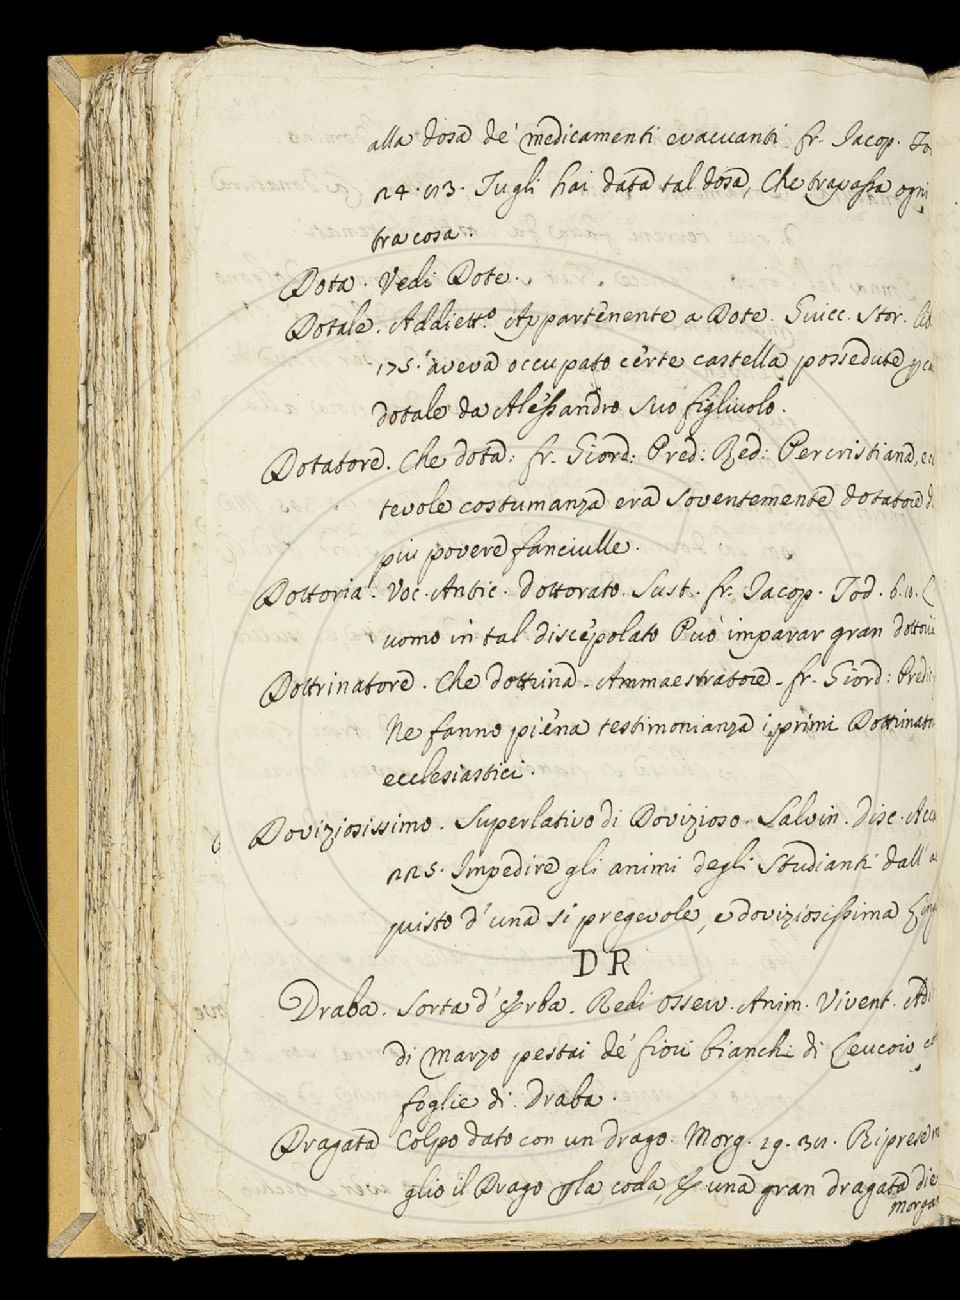 alla dosa de' medicamenti evacuanti fr. Jacop. To
24. 13. Tu gli hai data tal dosa, Che trapassa ogni
tra cosa.
Dota. Vedi Dote.
Dotale. Addiett.o Appartenente a Dote. Guicc. Stor. lib.
175. aveva occupato certe castella possedute
dotale da Alessandro suo figliuolo.
Dotatore. Che dota. fr. Giord: Pred: Red: Per cristiana, e
tevole costumanza era soventemente dotatore d
più povere fanciulle.
Dottoria. Voc. Antic. dottorato. Sust. fr. Jacop. Tod. 6. 10. L
uomo in tal discepolato Può imparar gran dottori
Dottrinatore. Che dottrina. Ammaestratore. fr. Giord: Predi
Ne fanno piena testimonianza i primi Dottrinato
ecclesiastici.
Doviziosissimo. Superlativo di Dovizioso. Salvin. disc. Acc
225. Impedire gli animi degli Studianti dall' a
quisto d' una si pregevole, e doviziosissima
DR
Draba. Sorta d' Erba. Redi Osserv. Anim. Vivent. Ad
di Marzo pestai de' fiori bianchi di Leucoio e
foglie di Draba.
Dragata Colpo dato con un drago. Morg. 19. 38. Riprese m
glio il Drago p la coda, E una gran dragata die
morga